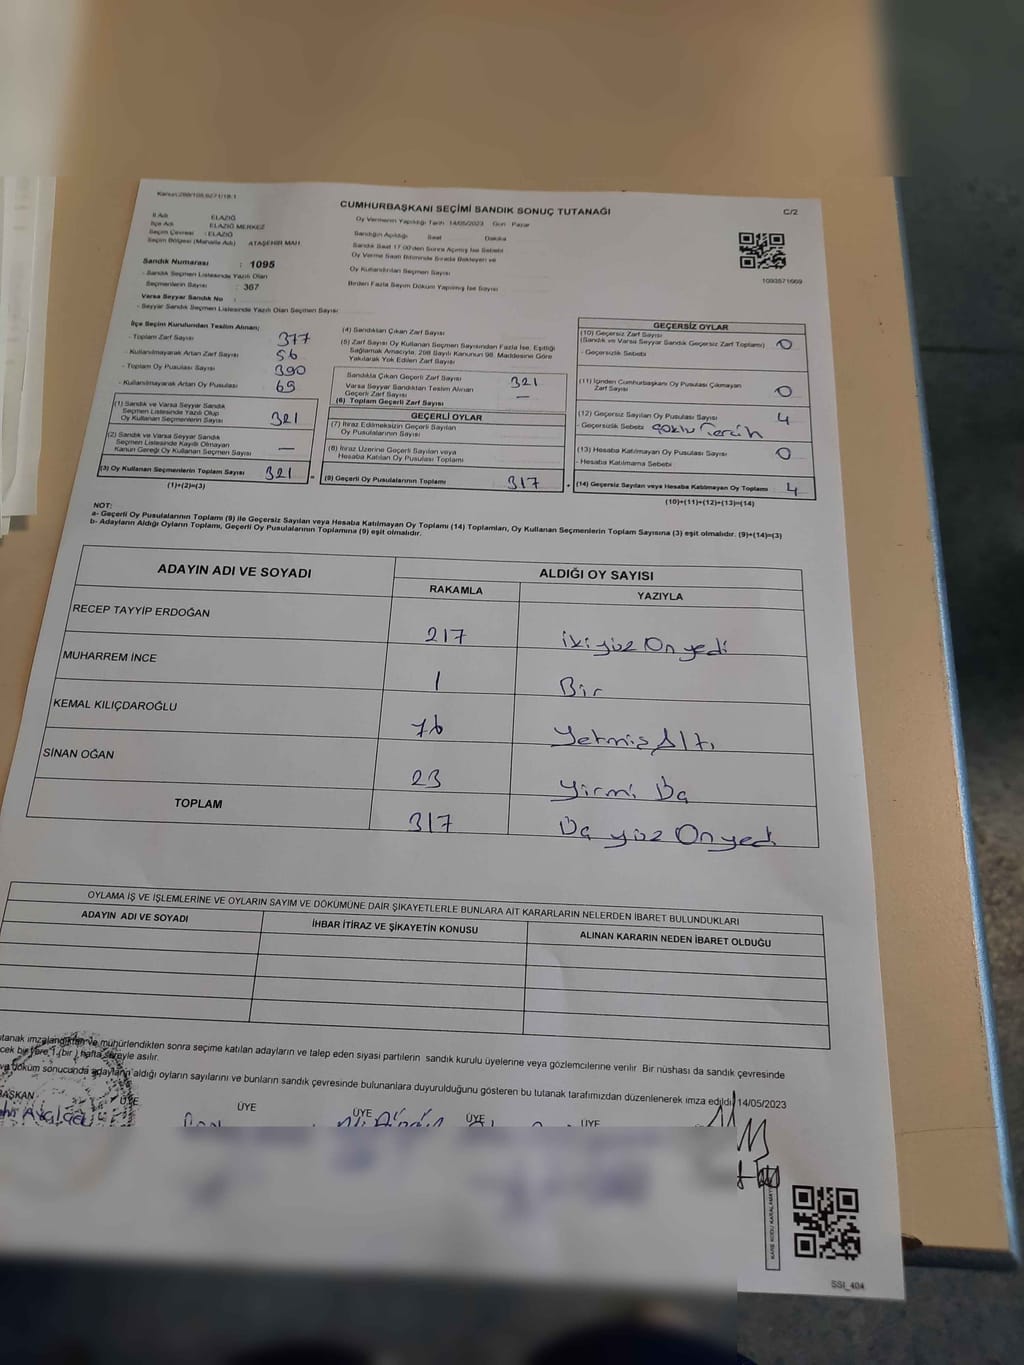 CUMHURBAŞKANI SEÇİMİ SANDIK SONUÇ TUTANAĞI
C/2
İl Adı : ELAZIĞ
İlçe Adı : ELAZIĞ MERKEZ
Seçim Çevresi : ELAZIĞ
Seçim Bölgesi (Mahalle Adı) : ATAŞEHİR MAH.
Oy Vermenin Yapıldığı Tarih : 14/05/2023 Gün : Pazar
Sandığın Açıldığı Saat Dakika
Sandık Saat 17.00'den Sonra Açılmış İse Sebebi
Oy Verme Saati Bitiminde Sırada Bekleyen ve
Oy Kullandırılan Seçmen Sayısı
Birden Fazla Sayım Döküm Yapılmış İse Sayısı
Sandık Numarası : 1095
- Sandık Seçmen Listesinde Yazılı Olan
Seçmenlerin Sayısı : 367
Varsa Seyyar Sandık No :
- Seyyar Sandık Seçmen Listesinde Yazılı Olan Seçmen Sayısı
İlçe Seçim Kurulundan Teslim Alınan;
- Toplam Zarf Sayısı 377
- Kullanılmayarak Artan Zarf Sayısı 56
- Toplam Oy Pusulası Sayısı 390
- Kullanılmayarak Artan Oy Pusulası 69
(1) Sandık ve Varsa Seyyar Sandık
Seçmen Listesinde Yazılı Olup
Oy Kullanan Seçmenlerin Sayısı 321
(2) Sandık ve Varsa Seyyar Sandık
Seçmen Listesinde Kayıtlı Olmayan
Kanun Gereği Oy Kullanan Seçmen Sayısı —
(3) Oy Kullanan Seçmenlerin Toplam Sayısı 321
(1)+(2)=(3)
(4) Sandıktan Çıkan Zarf Sayısı
(5) Zarf Sayısı Oy Kullanan Seçmen Sayısından Fazla İse, Eşitliği
Sağlamak Amacıyla, 298 Sayılı Kanunun 98. Maddesine Göre
Yakılarak Yok Edilen Zarf Sayısı
Sandıkta Çıkan Geçerli Zarf Sayısı 321
Varsa Seyyar Sandıktan Teslim Alınan
Geçerli Zarf Sayısı —
(6) Toplam Geçerli Zarf Sayısı
GEÇERLİ OYLAR
(7) İtiraz Edilmeksizin Geçerli Sayılan
Oy Pusulalarının Sayısı
(8) İtiraz Üzerine Geçerli Sayılan veya
Hesaba Katılan Oy Pusulası Toplamı
(9) Geçerli Oy Pusulalarının Toplamı 317
GEÇERSİZ OYLAR
(10) Geçersiz Zarf Sayısı
(Sandık ve Varsa Seyyar Sandık Geçersiz Zarf Toplamı) 0
- Geçersizlik Sebebi
(11) İçinden Cumhurbaşkanı Oy Pusulası Çıkmayan
Zarf Sayısı 0
(12) Geçersiz Sayılan Oy Pusulası Sayısı 4
- Geçersizlik Sebebi Çoklu Tercih
(13) Hesaba Katılmayan Oy Pusulası Sayısı 0
- Hesaba Katılmama Sebebi
(14) Geçersiz Sayılan veya Hesaba Katılmayan Oy Toplamı 4
(10)+(11)+(12)+(13)=(14)
NOT:
a- Geçerli Oy Pusulalarının Toplamı (9) ile Geçersiz Sayılan veya Hesaba Katılmayan Oy Toplamı (14) Toplamları, Oy Kullanan Seçmenlerin Toplam Sayısına (3) eşit olmalıdır. (9)+(14)=(3)
b- Adayların Aldığı Oyların Toplamı, Geçerli Oy Pusulalarının Toplamına (9) eşit olmalıdır.
ADAYIN ADI VE SOYADI ALDIĞI OY SAYISI
RAKAMLA YAZIYLA
RECEP TAYYİP ERDOĞAN 217 iki yüz On yedi
MUHARREM İNCE 1 Bir
KEMAL KILIÇDAROĞLU 76 Yetmiş Altı
SİNAN OĞAN 23 Yirmi Üç
TOPLAM 317 Üç yüz On yedi
OYLAMA İŞ VE İŞLEMLERİNE VE OYLARIN SAYIM VE DÖKÜMÜNE DAİR ŞİKAYETLERLE BUNLARA AİT KARARLARIN NELERDEN İBARET BULUNDUKLARI
ADAYIN ADI VE SOYADI İHBAR İTİRAZ VE ŞİKAYETİN KONUSU ALINAN KARARIN NEDEN İBARET OLDUĞU
tanak imzalandıktan ve mühürlendikten sonra seçime katılan adayların ve talep eden siyasi partilerin sandık kurulu üyelerine veya gözlemcilerine verilir. Bir nüshası da sandık çevresinde
bir yere 1 (bir) hafta süreyle asılır.
ve döküm sonucunda adayların aldığı oyların sayılarını ve bunların sandık çevresinde bulunanlara duyurulduğunu gösteren bu tutanak tarafımızdan düzenlenerek imza edildi. 14/05/2023
BAŞKAN ÜYE ÜYE ÜYE ÜYE ÜYE
KARE KODU KARALAMAYINIZ
SSI_404